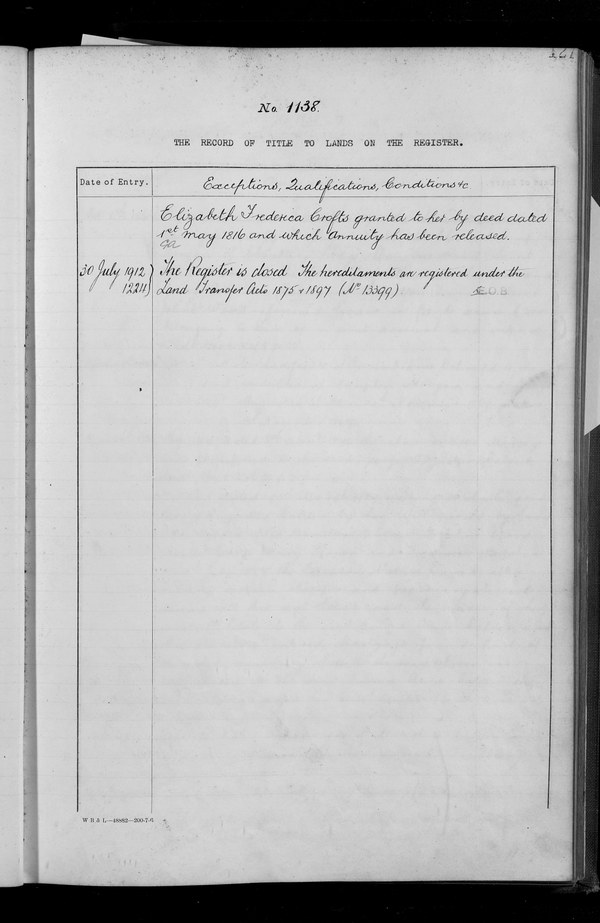 No. 1138.
THE RECORD OF TITLE TO LANDS ON THE REGISTER.
Date of Entry.
Exceptions, Qualifications, Conditions &c
Elizabeth Frederica Crofts granted to her by deed dated
1st May 1816 and which Annuity has been released.
30 July 1912
12211
The Register is closed The heredulaments are registered under the
Land Transfer Acts 1875 & 1897 (No 13399)
W B & L.—48982—200-7-0.